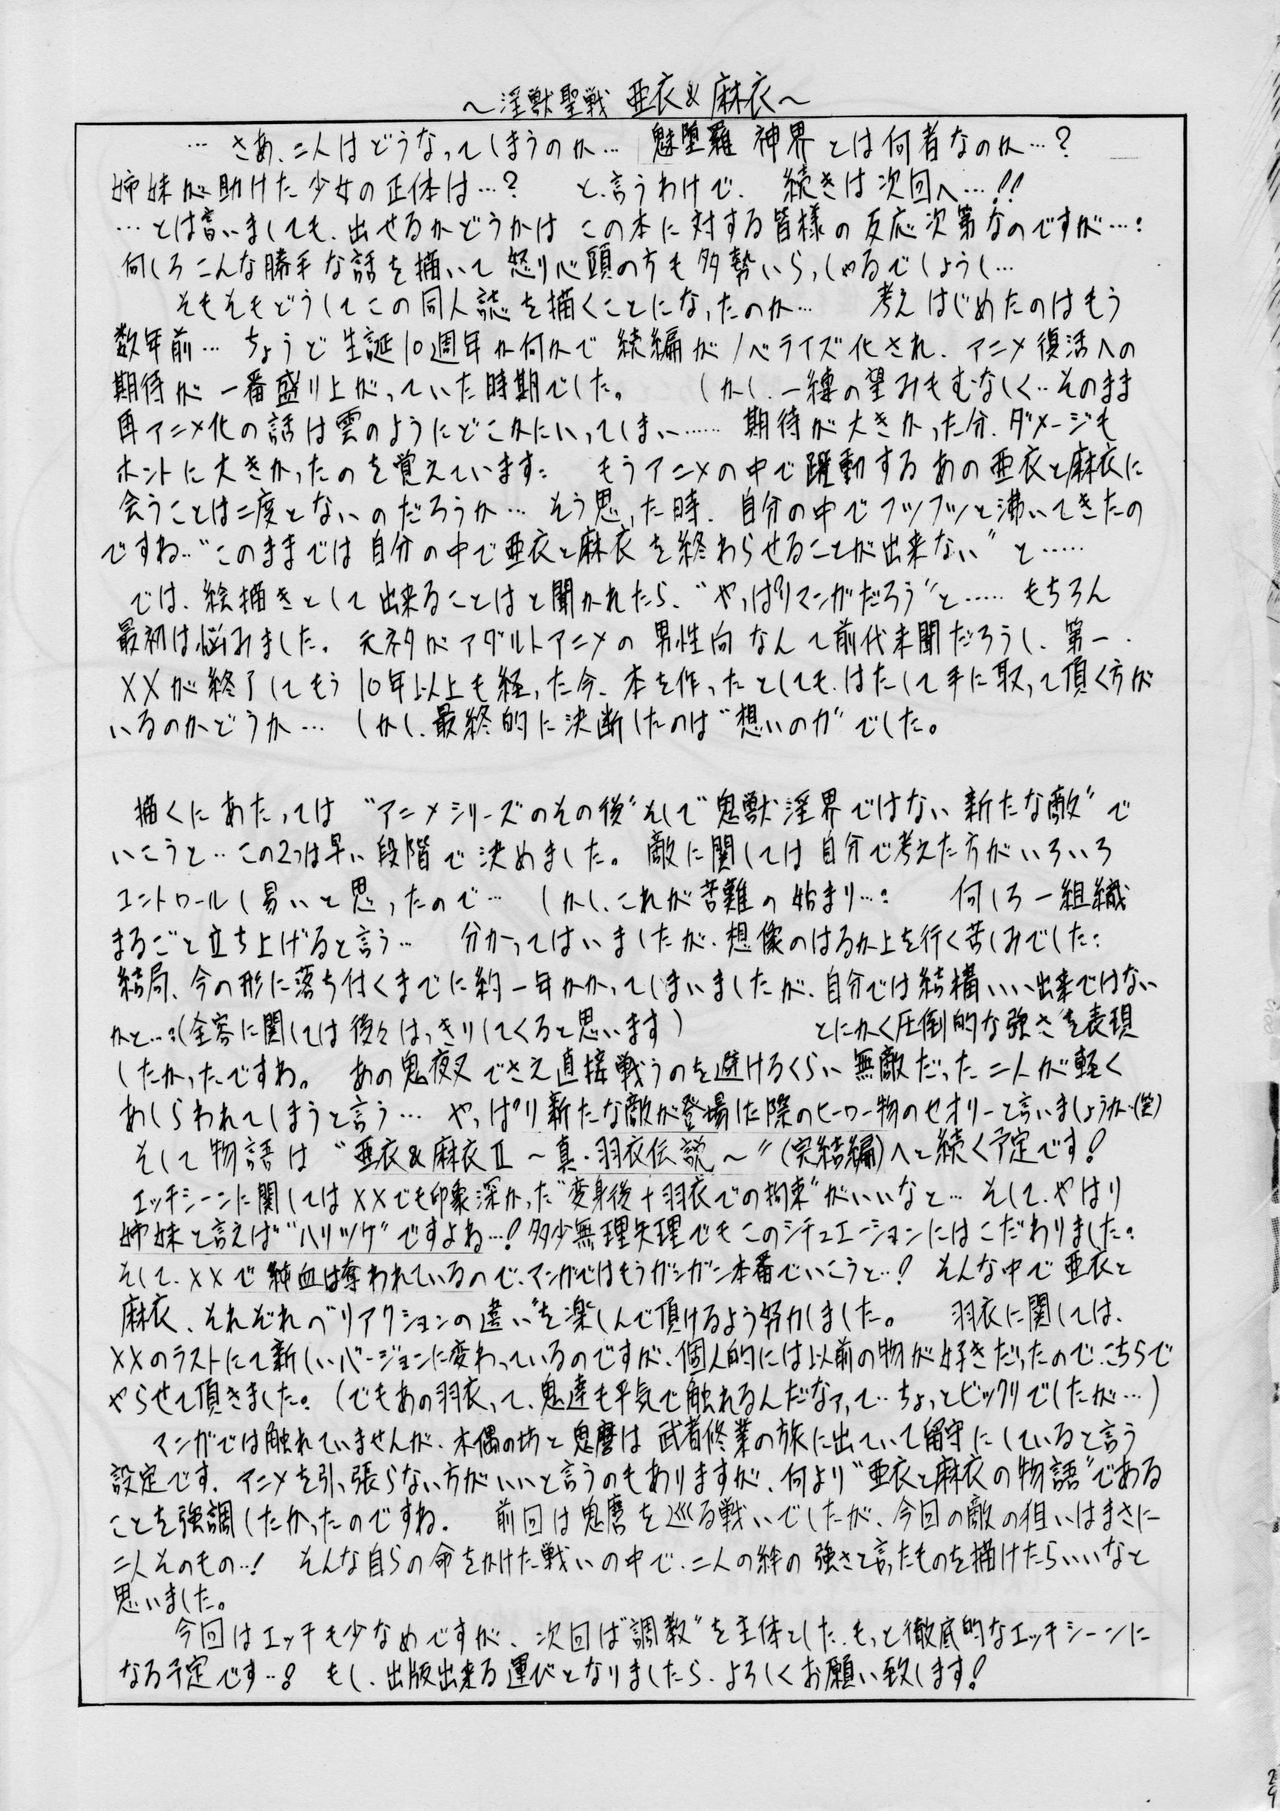 ～淫獣聖戦 亜衣&麻衣～
…さあ、二人はどうなってしまうのか… 魅堕羅神界とは何者なのか…?
姉妹が助けた少女の正体は…? と言うわけで、続きは次回へ…!!
…とは言いましても、出せるかどうかは この本に対する皆様の反応次第なのですが…:
何しろこんな勝手な話を描いて怒り心頭の方も多勢いらっしゃるでしょうし…
そもそもどうしてこの同人誌を描くことになったのか… 考えはじめたのはもう
数年前… ちょうど生誕10週年か何かで続編がノベライズ化され、アニメ復活への
期待が一番盛り上がっていた時期でした。 しかし、一縷の望みもむなしく‥そのまま
再アニメ化の話は雲のようにどこかにいってしまい…… 期待が大きかった分、ダメージも
ホントに大きかったのを覚えています: もうアニメの中で躍動するあの亜衣と麻衣に
会うことは二度とないのだろうか… そう思った時、自分の中でフツフツと沸いてきたの
ですね‥“このままでは自分の中で亜衣と麻衣を終わらせることが出来ない”と……
では、絵描きとして出来ることはと聞かれたら、“やっぱりマンガだろう”と…… もちろん
最初は悩みました。元ネタがアダルトアニメの男性向なんて前代未聞だろうし、第一、
XXが終了してもう10年以上も経った今、本を作ったとしても、はたして手に取って頂く方が
いるのかどうか… しかし、最終的に決断したのは“想いの力”でした。
描くにあたっては“アニメシリーズのその後”そして“鬼獣淫界ではない新たな敵”で
いこうと‥この2つは早い段階で決めました。敵に関しては自分で考えた方がいろいろ
コントロールし易いと思ったので… しかし、これが苦難の始まり…: 何しろ一組織
まるごと立ち上げると言う… 分かってはいましたが、想像のはるか上を行く苦しみでした:
結局、今の形に落ち付くまでに約一年かかってしまいましたが、自分では結構いい出来ではない
かと…:(全容に関しては後々はっきりしてくると思います) とにかく“圧倒的な強さ”を表現
したかったですね。 あの鬼夜叉でさえ直接戦うのを避けるくらい無敵だった二人が軽く
あしらわれてしまうと言う… やっぱり新たな敵が登場した際のヒーロー物のセオリーと言いましょうか‥(笑)
そして物語は“亜衣&麻衣Ⅱ ～真・羽衣伝説～”(完結編)へと続く予定です!
エッチシーンに関してはXXでも印象深かった“変身後+羽衣での拘束”がいいなと… そして、やはり
姉妹と言えば“ハリツケ”ですよね…! 多少無理矢理でもこのシチュエーションにはこだわりました:
そして、XXで純血は奪われているので、マンガではもうガンガン本番でいこうと‥! そんな中で亜衣と
麻衣、それぞれの“リアクションの違い”を楽しんで頂けるよう努力しました。 羽衣に関しては、
XXのラストにて新しいバージョンに変わっているのですが、個人的には以前の物が好きだったので、こちらで
やらせて頂きました。(でもあの羽衣って、鬼達も平気で触れるんだなァって‥ちょっとビックリでしたが…)
マンガでは触れていませんが、木偶の坊と鬼麿は武者修業の旅に出ていて留守にしていると言う
設定です。アニメを引っ張らない方がいいと言うのもありますが、何より“亜衣と麻衣の物語”である
ことを強調したかったのですね。 前回は鬼麿を巡る戦いでしたが、今回の敵の狙いはまさに
二人そのもの‥! そんな自らの命をかけた戦いの中で、二人の絆の強さと言ったものを描けたらいいなと
思いました。
今回はエッチも少なめですが、次回は“調教”を主体とした、もっと徹底的なエッチシーンに
なる予定です‥! もし、出版出来る運びとなりましたら、よろしくお願い致します!
29